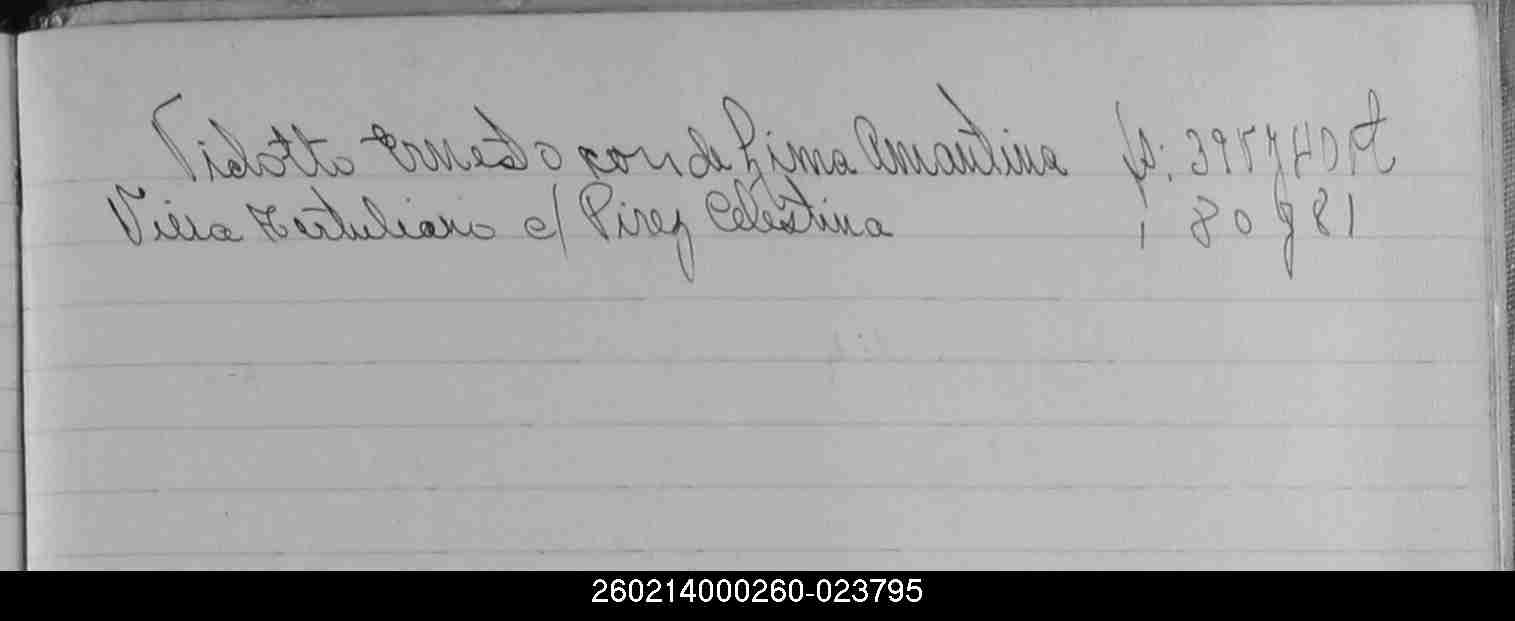 Vidotto Ernesto con de Lima Amantina fs: 395 y 40
Viera Tertuliano c/ Pirez Celestina " 80 y 81
260214000260-023795